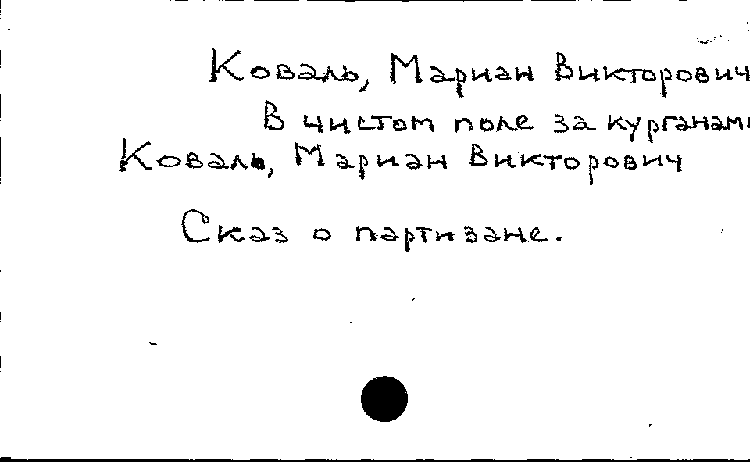 Коваль, Мариан Викторович
В чистом поле за курганами
Коваль, Мариан Викторович
Сказ о партизане.